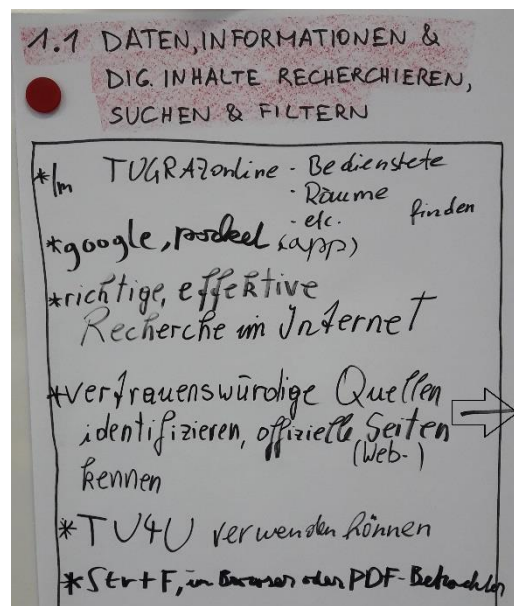 1.1 DATEN, INFORMATIONEN &
DIG. INHALTE RECHERCHIEREN,
SUCHEN & FILTERN
* Im TUGRAZonline - Bedienstete
- Räume
- etc. finden
* google, pocket (app)
* richtige, effektive
Recherche im Internet
* vertrauenswürdige Quellen
identifizieren, offizielle Seiten
(Web-)
kennen
* TU4U verwenden können
* Str+F, in Browser oder PDF-Betrachter